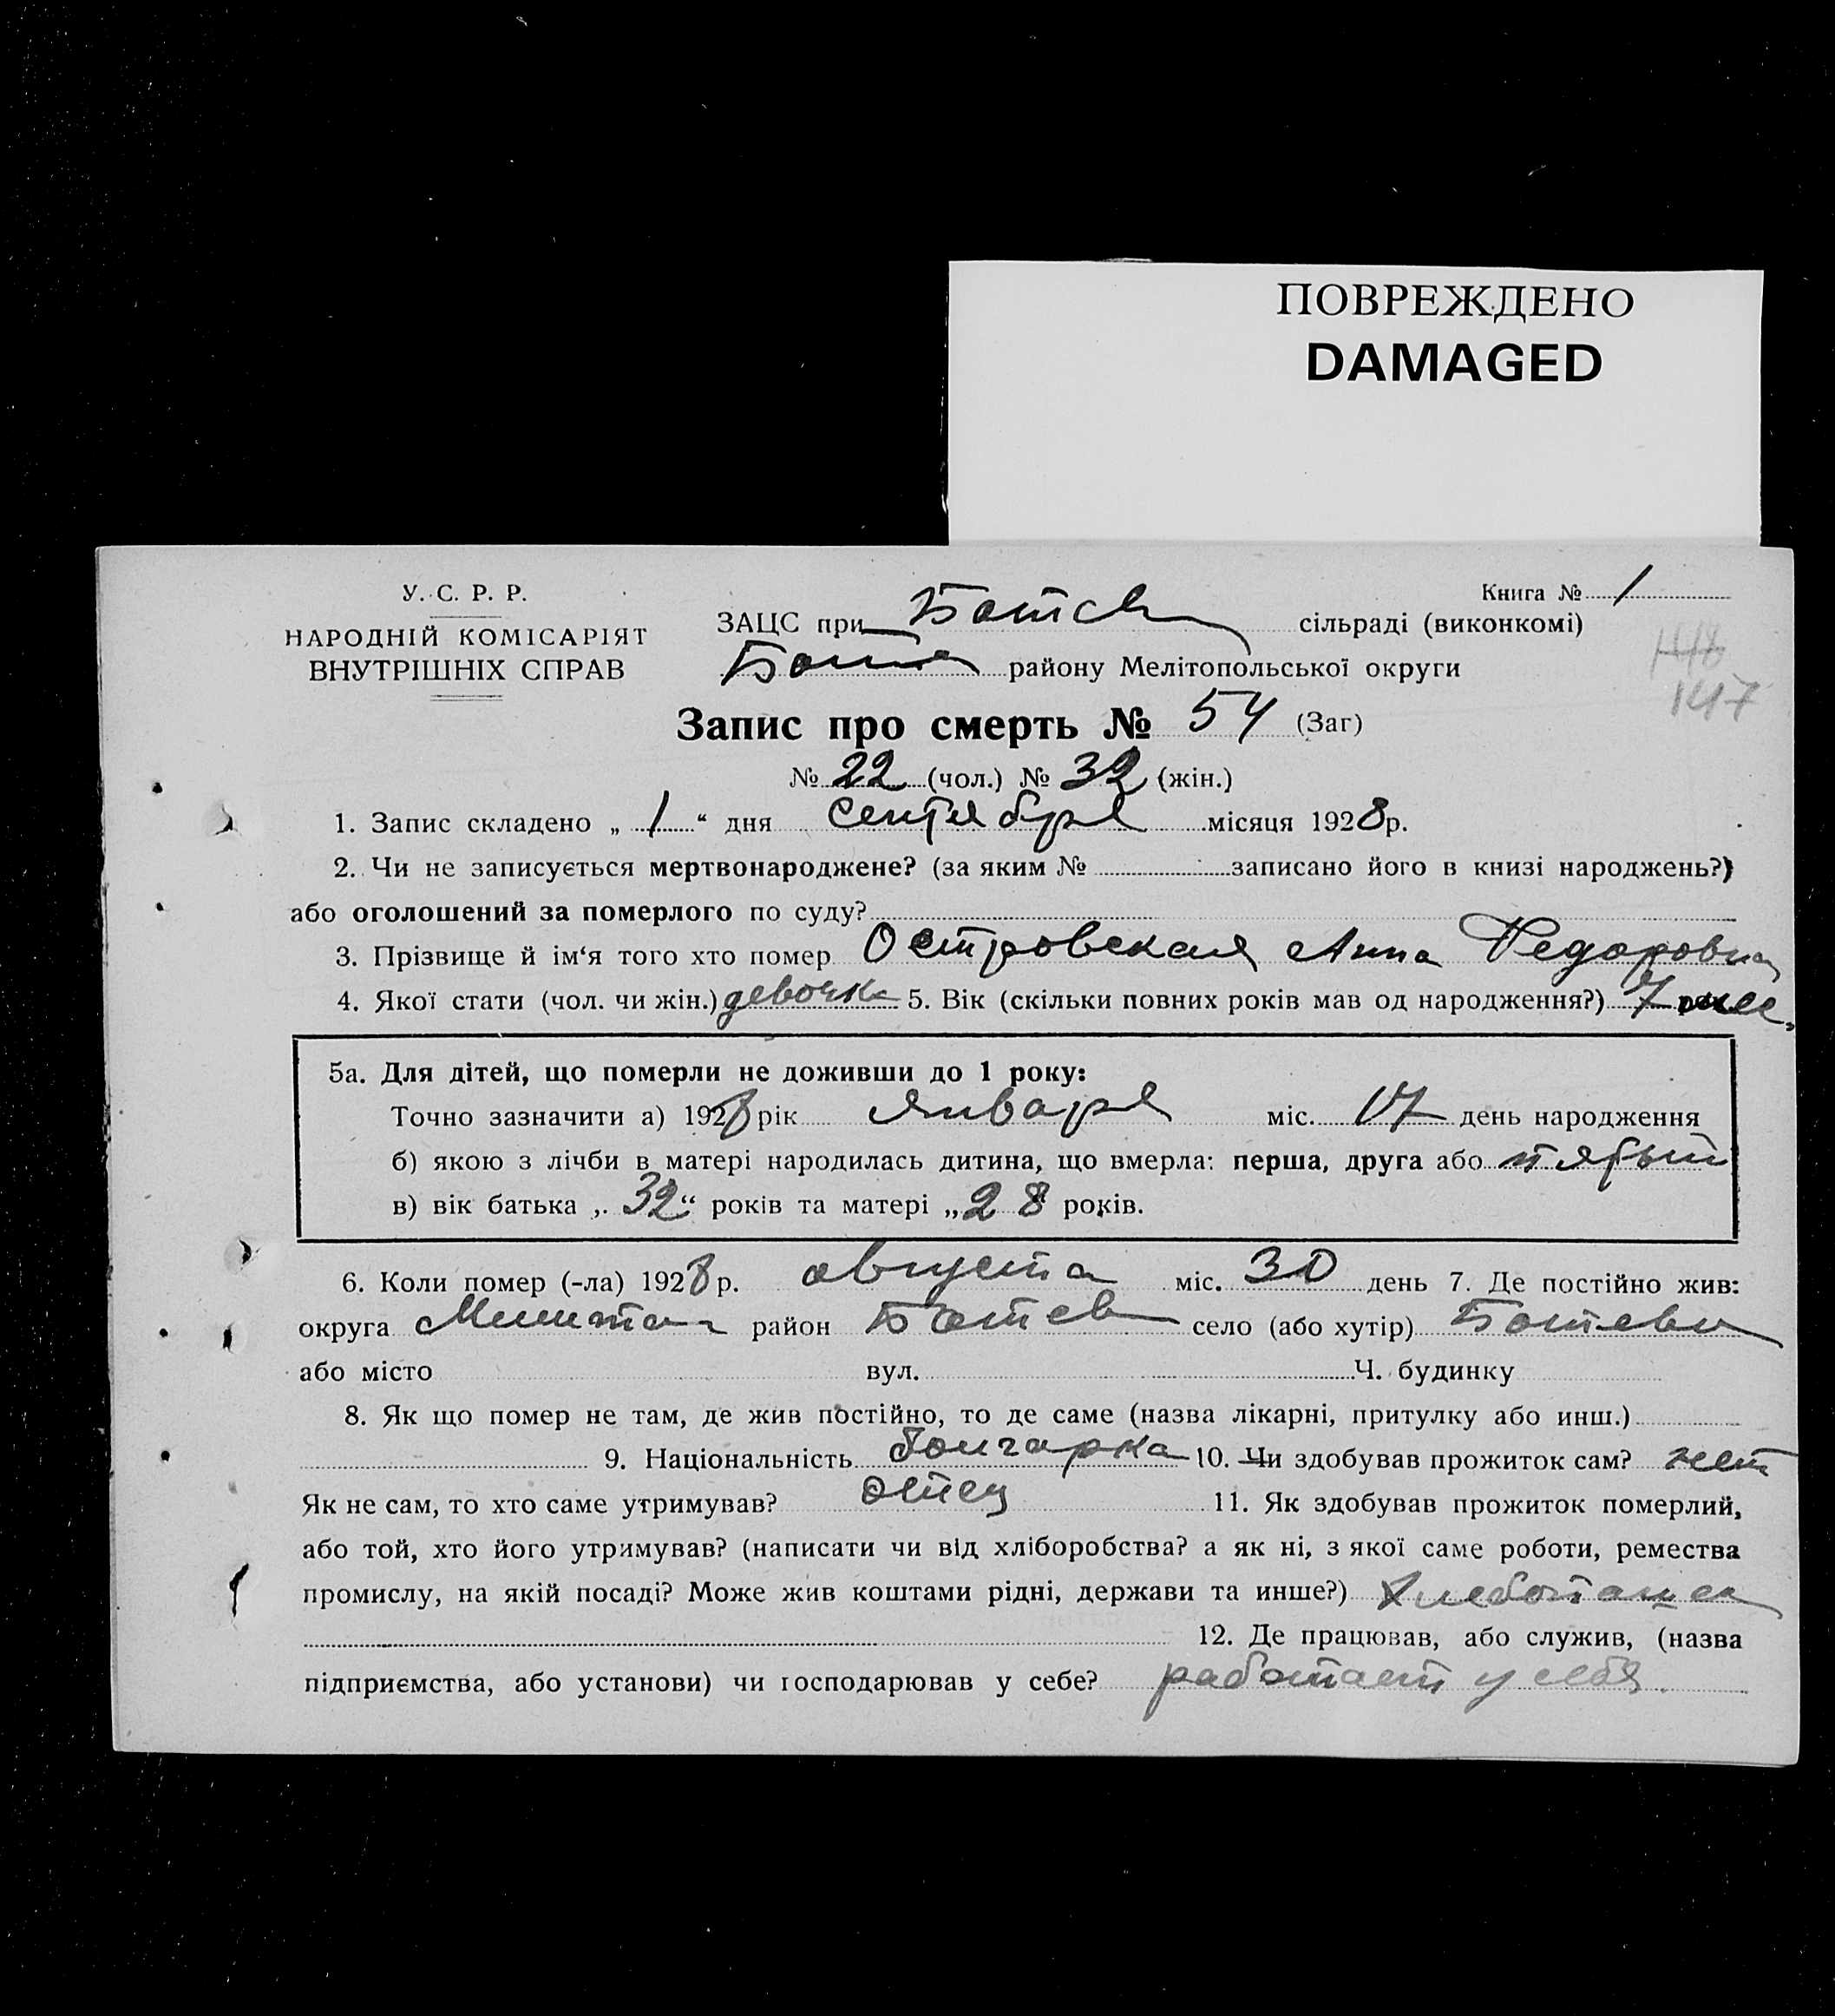 ПОВРЕЖДЕНО
DAMAGED
У. С. Р. Р.
НАРОДНІЙ КОМІСАРІЯТ
ВНУТРІШНІХ СПРАВ
Книга № 1
ЗАЦС при Ботєв сільраді (виконкомі)
району Мелітопольської округи
147
Запис про смерть № 54 (Заг)
№ 22 (чол.) № 32 (жін.)
1. Запис складено „ 1 “ дня сентября місяця 1928 р.
2. Чи не записується мертвонароджене? (за яким № записано його в книзі народжень?)
або оголошений за померлого по суду?
3. Прізвище й ім‘я того хто помер Островская Анна Федоровна
4. Якої стати (чол. чи жін.) девочка 5. Вік (скільки повних років мав од народження?) 7 мес.
5а. Для дітей, що померли не доживши до 1 року:
Точно зазначити а) 1928 рік января міс. 17 день народження
б) якою з лічби в матері народилась дитина, що вмерла: перша, друга або пятый
в) вік батька „ 32 “ років та матері „ 28 “ років.
6. Коли помер (-ла) 1928 р. августа міс. 30 день 7. Де постійно жив:
округа район Ботев село (або хутір) Ботево
або місто вул. Ч. будинку
8. Як що помер не там, де жив постійно, то де саме (назва лікарні, притулку або инш.)
9. Національність болгарка 10. Чи здобував прожиток сам? нет
Як не сам, то хто саме утримував? отец 11. Як здобував прожиток померлий,
або той, хто його утримував? (написати чи від хліборобства? а як ні, з якої саме роботи, ремества
промислу, на якій посаді? Може жив коштами рідні, держави та инше?) хлебопашец
12. Де працював, або служив, (назва
підприємства, або установи) чи господарював у себе? работает у себя.